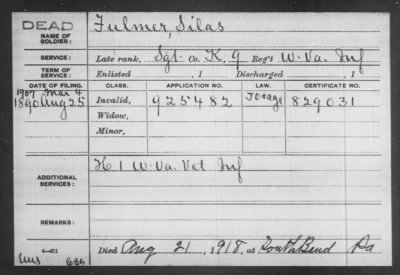 DEAD
NAME OF SOLDIER:
Fulmer, Silas
SERVICE:
Late rank, Sgt Co. K, 9 Reg't W. Va. Inf
TERM OF SERVICE:
Enlisted , 1 Discharged , 1
DATE OF FILING. CLASS. APPLICATION NO. LAW. CERTIFICATE NO.
1907 Mar 4
1890 Aug 25 Invalid, 925482 829031
Widow,
Minor,
ADDITIONAL SERVICES:
H 1 W. Va. Vet Inf
REMARKS:
Died Aug 21, 1918, at South Bend Pa